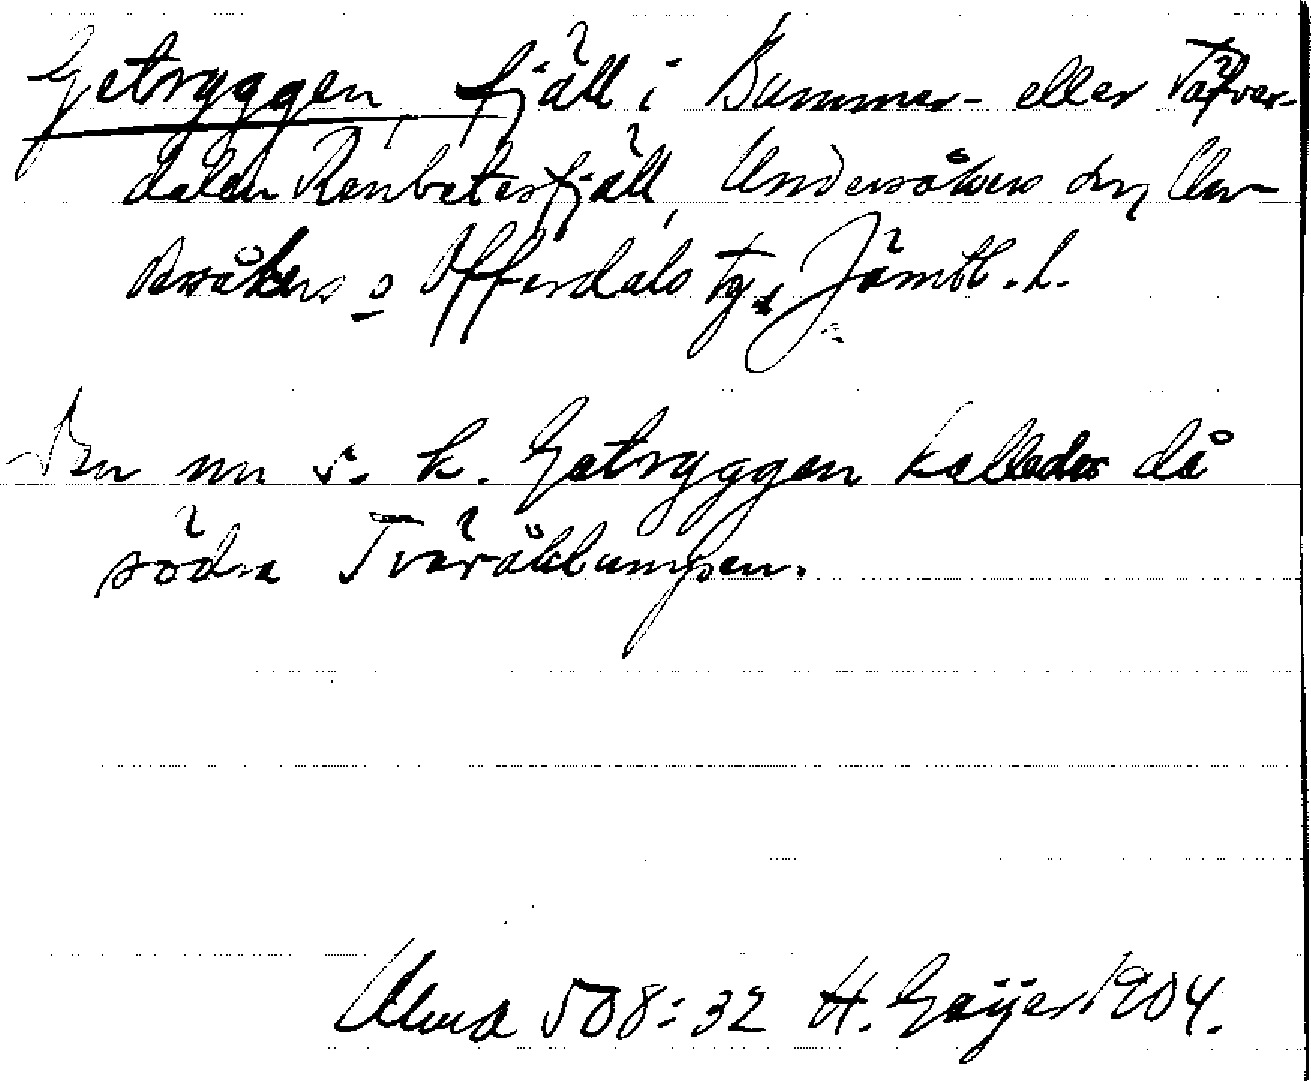 Getryggen, fjäll i Bummer- eller Täfver-
dalen Renbetesfjäll, Undersåkers sn, Un-
dersåkers o Offerdals tg, Jämtl. l.
Den nu s. k. Getryggen kallades då
södra Tväråklumpen.
Ulma 508:32 H. Geijer 1904.